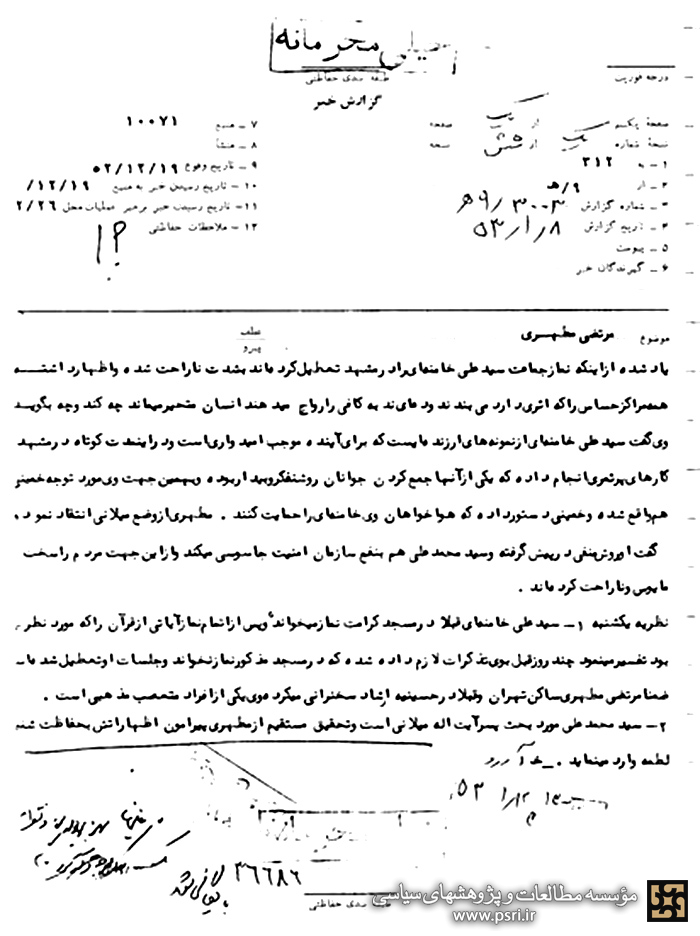 خیلی محرمانه
طبقه بندی حفاظتی
درجه فوریت
گزارش خبر
صفحهٔ یکم از یک صفحه
نسخهٔ شماره یک از شش نسخه
۱ـ به ۳۱۲
۲ـ از ۹/هـ
۳ـ شماره گزارش ۹/۳۰۰۳هـ
۴ـ تاریخ گزارش ۵۳/۱/۸
۵ـ پیوست
۶ـ گیرندگان خبر
۷ـ منبع ۱۰۰۷۱
۸ـ منشأ
۹ـ تاریخ وقوع ۵۲/۱۲/۱۹
۱۰ـ تاریخ رسیدن خبر به منبع /۱۲/۱۹
۱۱ـ تاریخ رسیدن خبر برهبر عملیات محل ۲/۲۶
۱۲ـ ملاحظات حفاظتی
موضوع مرتضی مطهری
عطف
پیرو
یاد شده از اینکه نماز جماعت سید علی خامنه‌ای را در مشهد تعطیل کرده‌اند بشدت ناراحت شده و اظهار داشته
همه مراکز حساس را که اثری دارد می بندند و ده‌ای ند به کافی را رواج میدهند انسان متحیر میماند چه کند و چه بگوید
وی گفت سید علی خامنه‌ای از نمونه‌های ارزنده‌ایست که برای آینده موجب امیدواری است و در این مدت کوتاه در مشهد
کارهای پرثمری انجام داده که یکی از آنها جمع کردن جوانان روشنفکر و بیدار بوده و بهمین جهت وی مورد توجه خمینی
هم واقع شده و خمینی دستور داده که هواخواهان وی خامنه‌ای را حمایت کنند . مطهری از وضع میلانی انتقاد نموده
گفت او روش منفی در پیش گرفته و سید محمد علی هم بنفع سازمان امنیت جاسوسی میکند و از این جهت مردم را سخت
مایوس و ناراحت کرده‌اند .
نظریه یکشنبه ۱ـ سید علی خامنه‌ای قبلا در مسجد کرامت نماز میخواند و پس از اتمام نماز آیاتی از قرآن را که مورد نظر
بود تفسیر مینمود چند روز قبل بوی تذکرات لازم داده شده که در مسجد مذکور نماز نخواند و جلسات او تعطیل شد
ضمنا مرتضی مطهری ساکن تهران و قبلا در حسینیه ارشاد سخنرانی میکرده وی یکی از افراد متعصب مذهبی است .
۲ـ سید محمد علی مورد بحث پسر آیت اله میلانی است و تحقیق مستقیم از مطهری پیرامون اظهاراتش بحفاظت منبع
لطمه وارد مینماید .
۵۳/۱/۱۲
۳۶۶۸۶
بایگانی شود
طبقه بندی حفاظتی
مؤسسه مطالعات و پژوهشهای سیاسی
www.psri.ir